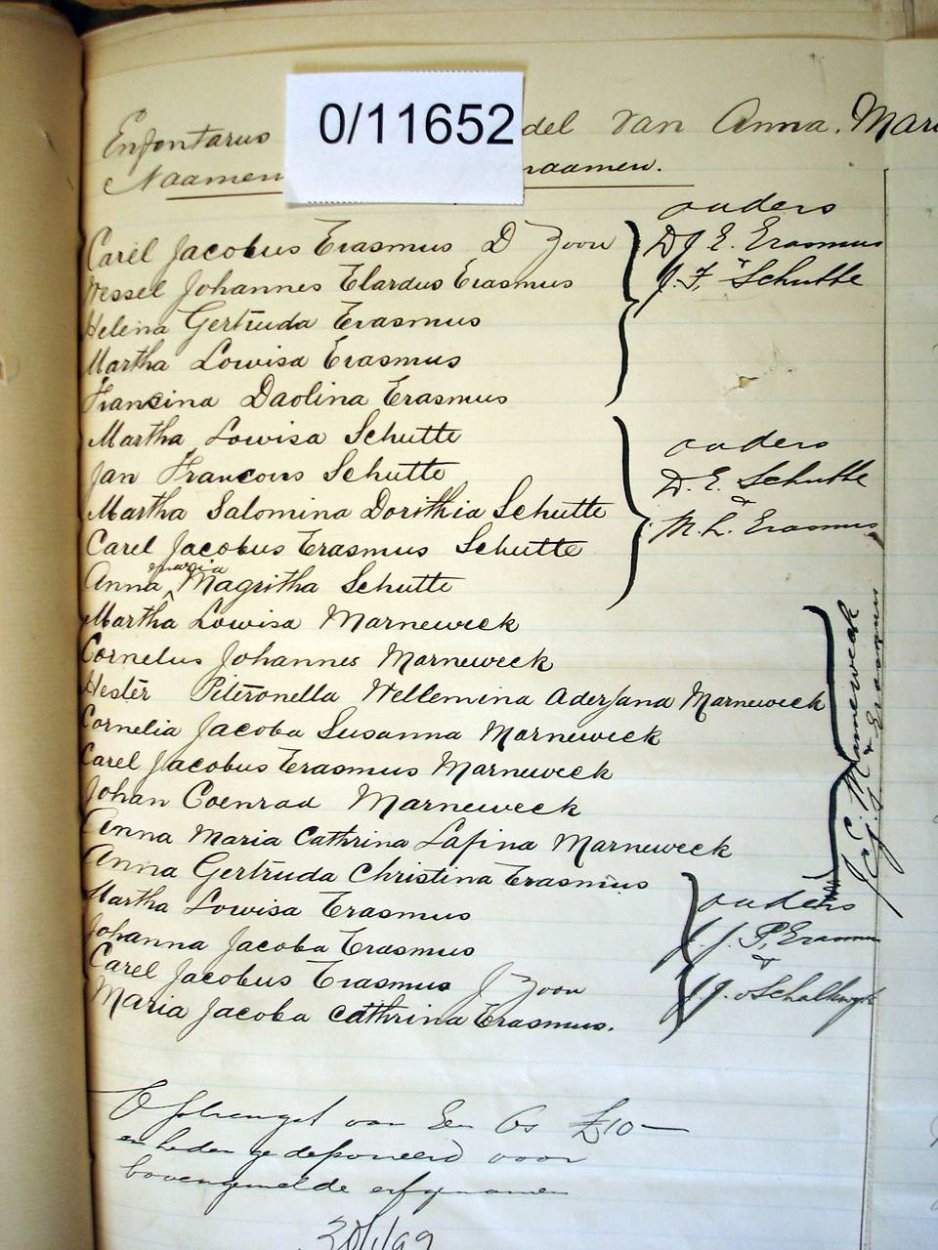 0/11652
Enfontarus del van Anna. Mari
Naamen naamen.
ouders
Carel Jacobus Erasmus D Zoon
D J E. Erasmus
&
Wessel Johannes Elardus Erasmus
J. F. Schutte
Helena Gertruda Erasmus
Martha Lowisa Erasmus
Fransina Daolina Erasmus
Martha Lowisa Schutte
ouders
Jan Francois Schutte
D. E. Schutte
&
Martha Salomina Dorithia Schutte
M. L. Erasmus
Carel Jacobus Erasmus Schutte
Anna Maria Magritha Schutte
Martha Lowisa Marneweck
Cornelus Johannes Marneweck
Hester Piteronella Wellemina Aderjana Marneweck
Cornelia Jacoba Susanna Marneweck
Carel Jacobus Erasmus Marneweck
Johan Coenrad Marneweck
Anna Maria Cathrina Lafina Marneweck
J. C. Marneweck
& Erasmus
Anna Gertruda Christina Erasmus
ouders
Martha Lowisa Erasmus
J. J. P. Erasmus
&
Johanna Jacoba Erasmus
Carel Jacobus Erasmus J Zoon
J J. v Schalkwyk
Maria Jacoba Cathrina Erasmus.
Opbrengst van Een Os £10—
en heden gedeponeerd voor
bovengemelde erfgenamen
30/1/99